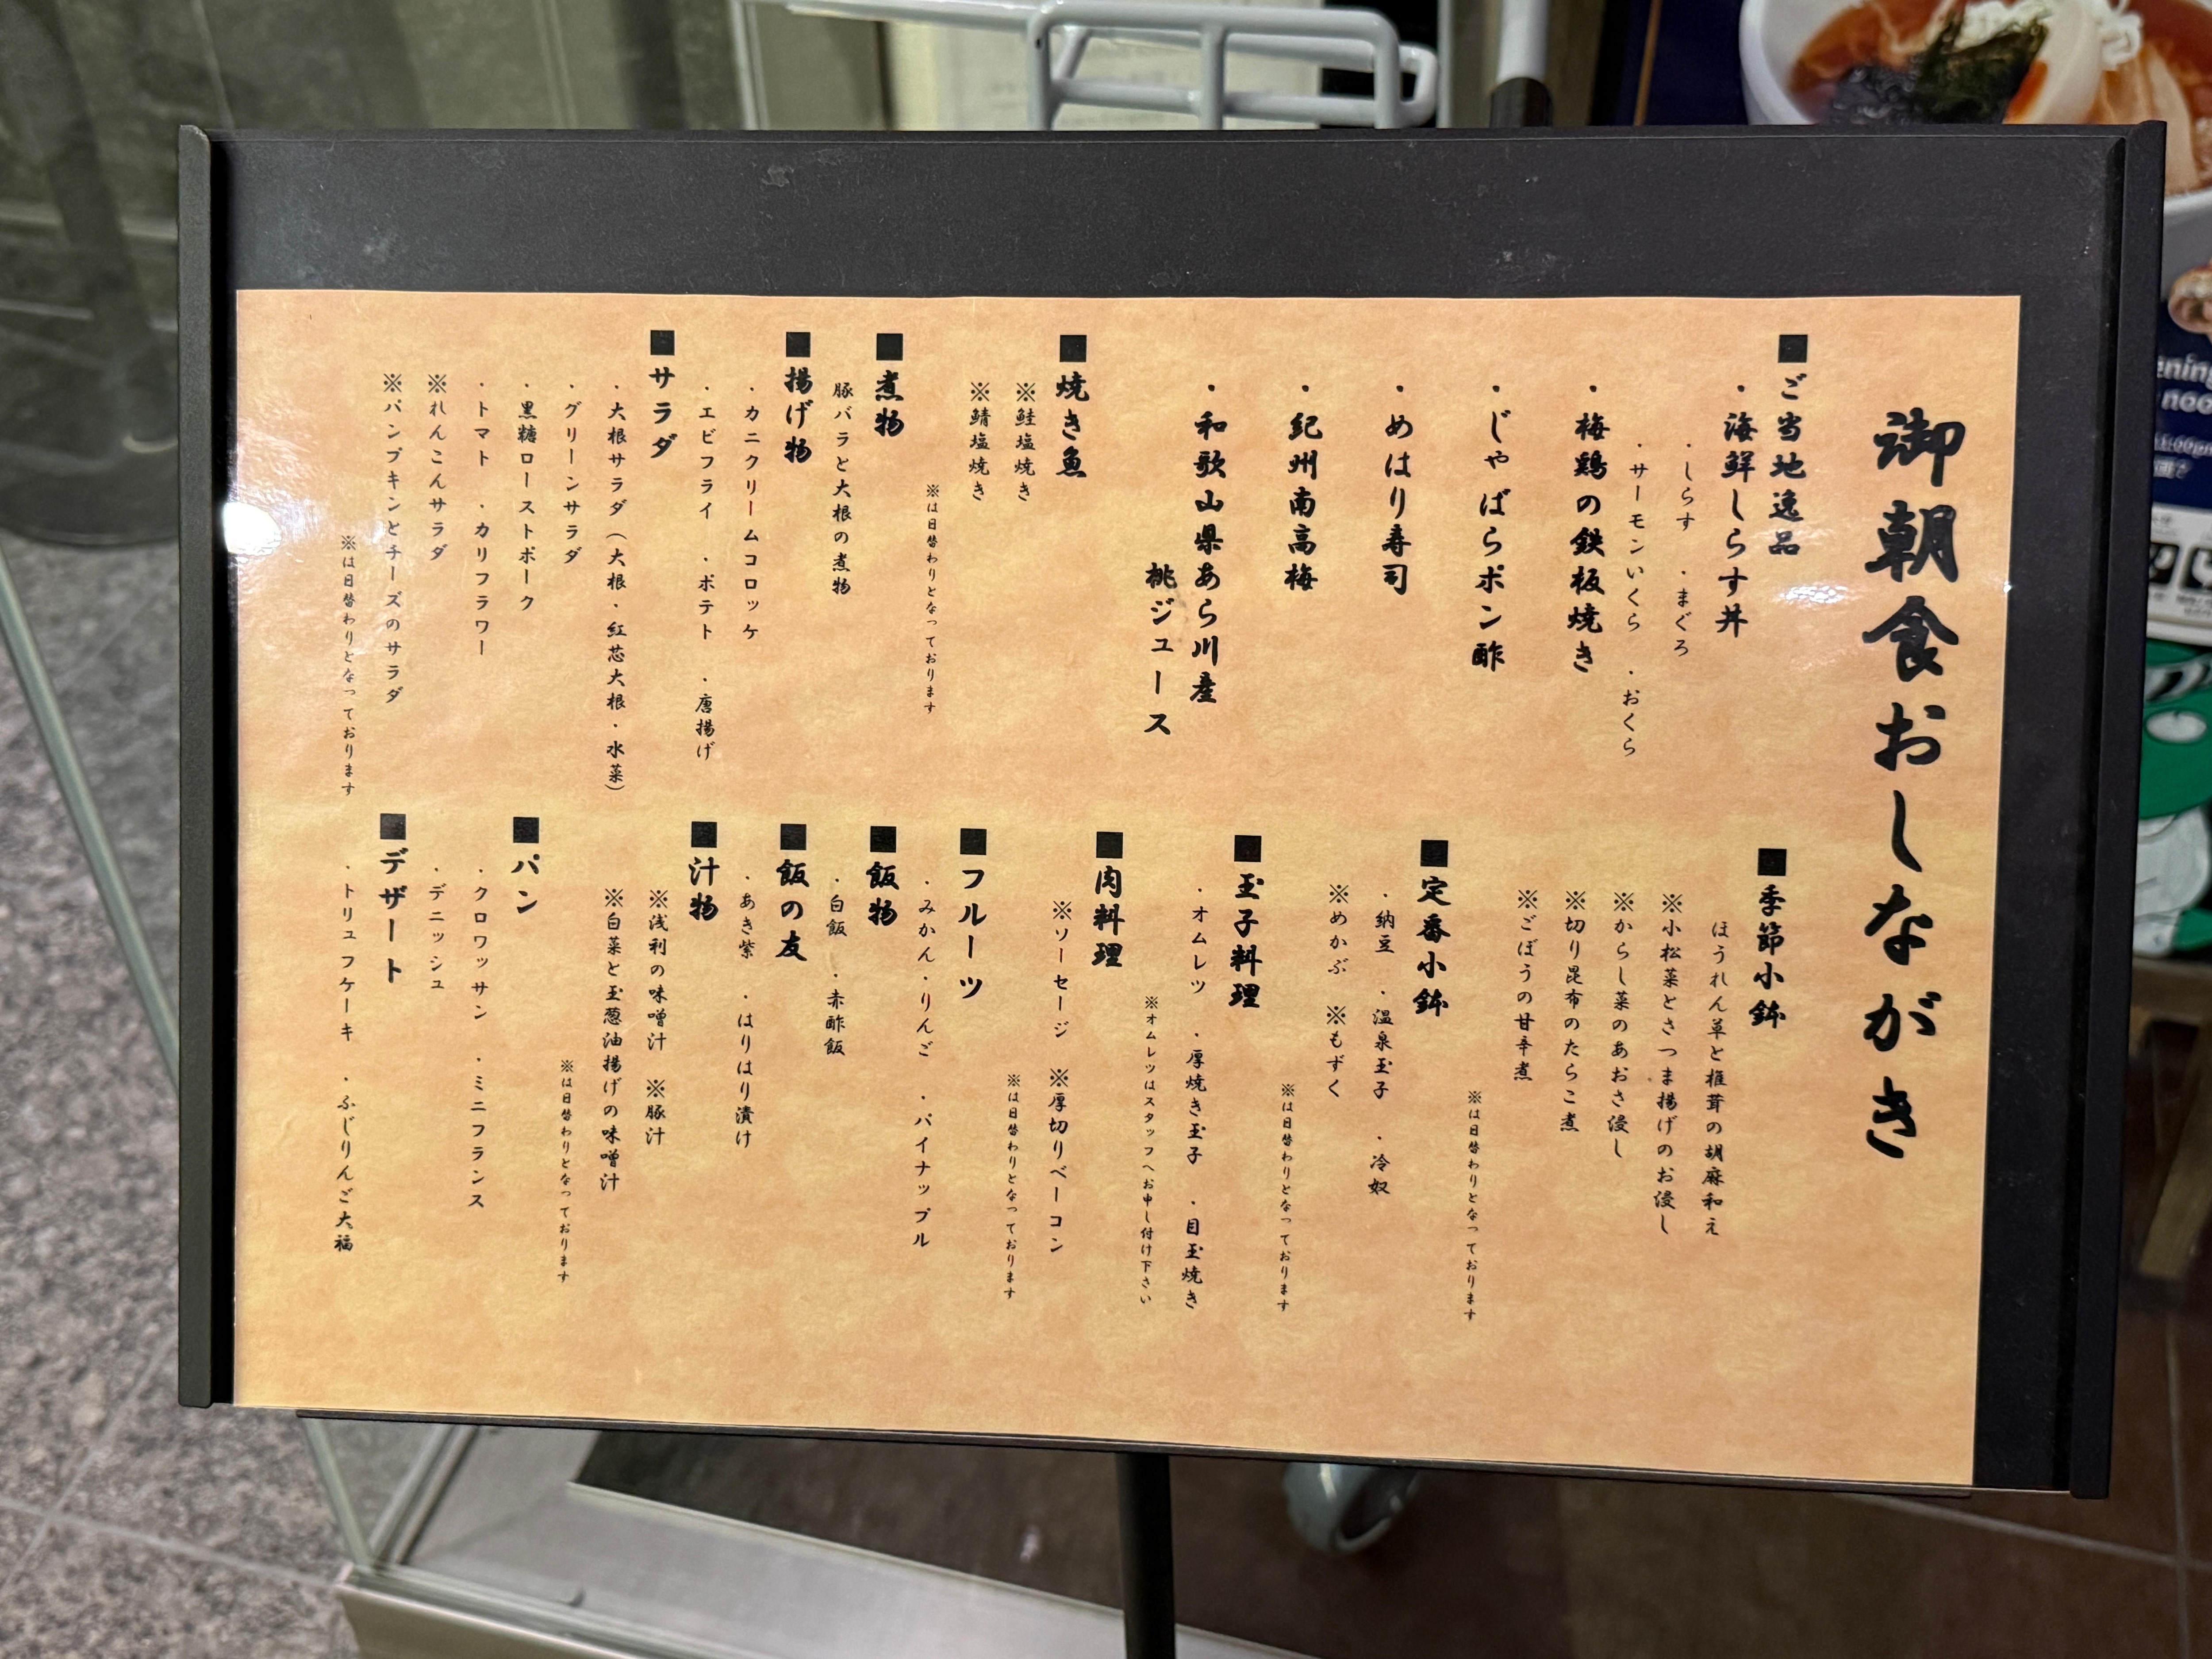 御朝食おしながき
■ご当地逸品
・海鮮しらす丼
・しらす ・まぐろ
・サーモンいくら ・おくら
・梅鶏の鉄板焼き
・じゃばらポン酢
・めはり寿司
・紀州南高梅
・和歌山県あら川産
桃ジュース
■焼き魚
※鮭塩焼き
※鯖塩焼き
※は日替わりとなっております
■煮物
豚バラと大根の煮物
■揚げ物
・カニクリームコロッケ
・エビフライ ・ポテト ・唐揚げ
■サラダ
・大根サラダ(大根・紅芯大根・水菜)
・グリーンサラダ
・黒糖ローストポーク
・トマト ・カリフラワー
※れんこんサラダ
※パンプキンとチーズのサラダ
※は日替わりとなっております
■季節小鉢
ほうれん草と椎茸の胡麻和え
※小松菜とさつま揚げのお浸し
※からし菜のあおさ浸し
※切り昆布のたらこ煮
※ごぼうの甘辛煮
※は日替わりとなっております
■定番小鉢
・納豆 ・温泉玉子 ・冷奴
※めかぶ ※もずく
※は日替わりとなっております
■玉子料理
・オムレツ ・厚焼き玉子 ・目玉焼き
※オムレツはスタッフへお申し付け下さい
■肉料理
※ソーセージ ※厚切りベーコン
※は日替わりとなっております
■フルーツ
・みかん・りんご ・パイナップル
■飯物
・白飯 ・赤酢飯
■飯の友
・あき紫 ・はりはり漬け
■汁物
※浅利の味噌汁 ※豚汁
※白菜と玉葱油揚げの味噌汁
※は日替わりとなっております
■パン
・クロワッサン ・ミニフランス
・デニッシュ
■デザート
・トリュフケーキ ・ふじりんご大福